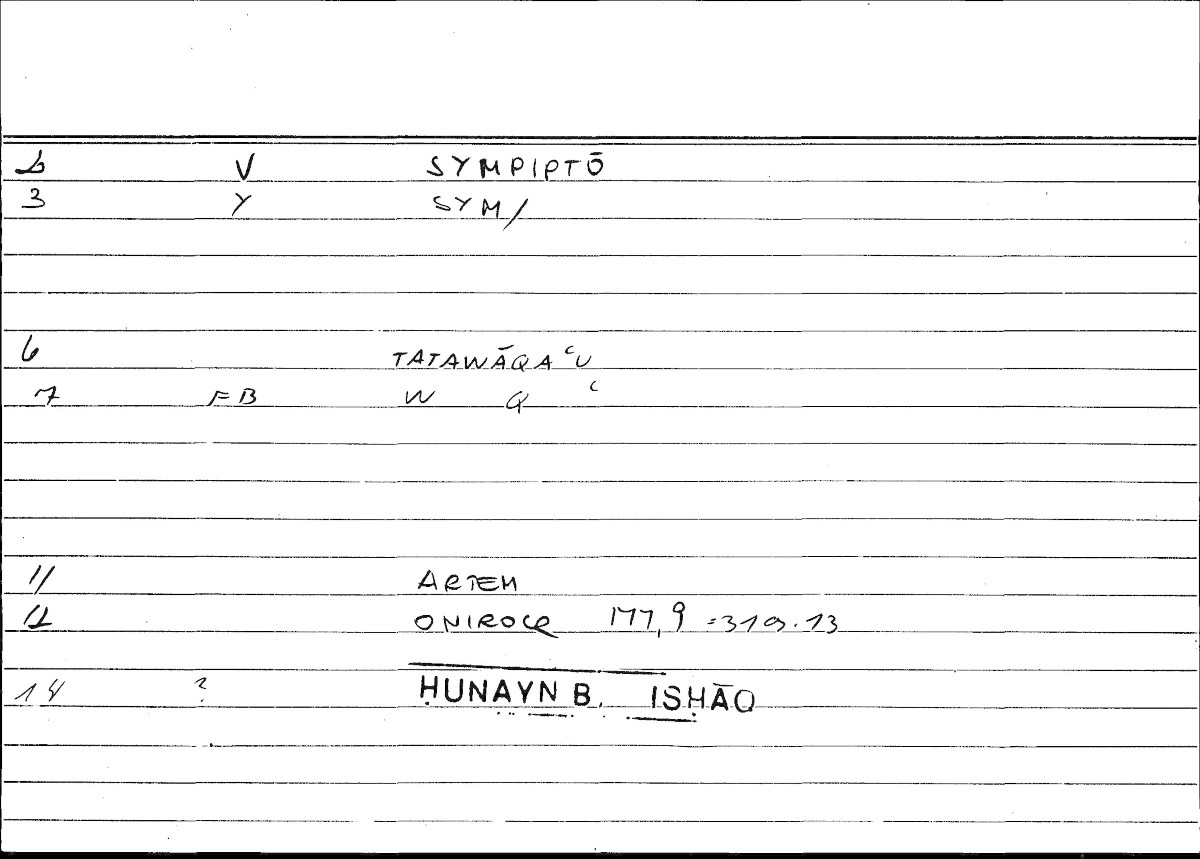 2 V SYMPIPTŌ
3 Y SYM/
6 TATAWĀQAʿU
7 FB W Q ʿ
11 ARTEM
12 ONIROCR 177,9 =319.13
14 ? ḤUNAYN B. ISḤĀQ